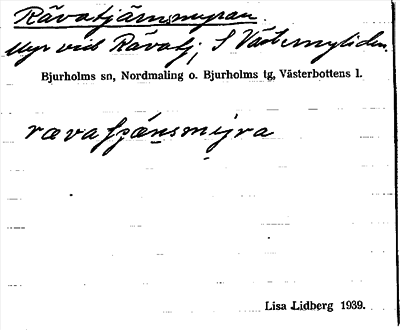 Rävatjärnsmyran.
Myr vid Rävatj; S Västermyrliden.
Bjurholms sn, Nordmaling o. Bjurholms tg, Västerbottens l.
Lisa Lidberg 1939.